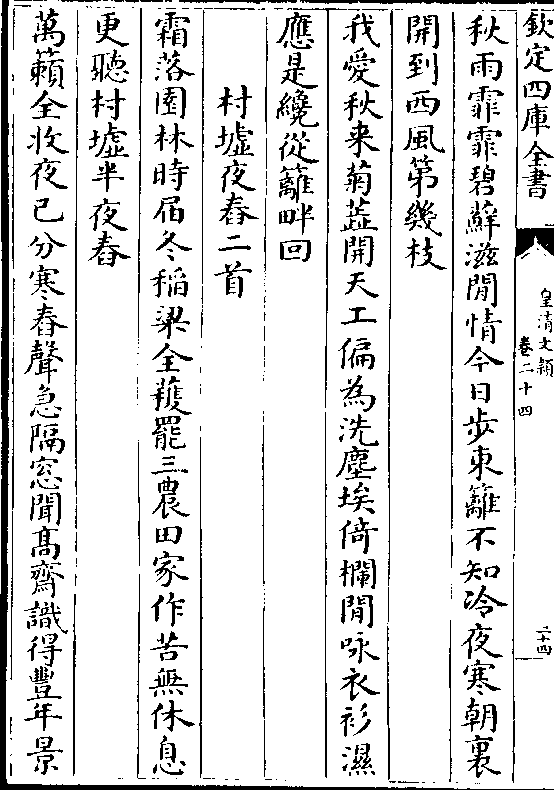 欽定四庫全書
皇清文穎
卷二十四
二十四
秋雨霏霏碧蘚滋閒情今日步東籬不知冷夜寒朝裏
開到西風第幾枝
我愛秋来菊蕋開天工偏為洗塵埃倚欄閒咏衣衫濕
應是纔從籬畔回
村墟夜舂二首
霜落園林時届冬稻粱全穫罷三農田家作苦無休息
更聽村墟半夜舂
萬籟全收夜已分寒舂聲急隔窓聞髙齋識得豐年景